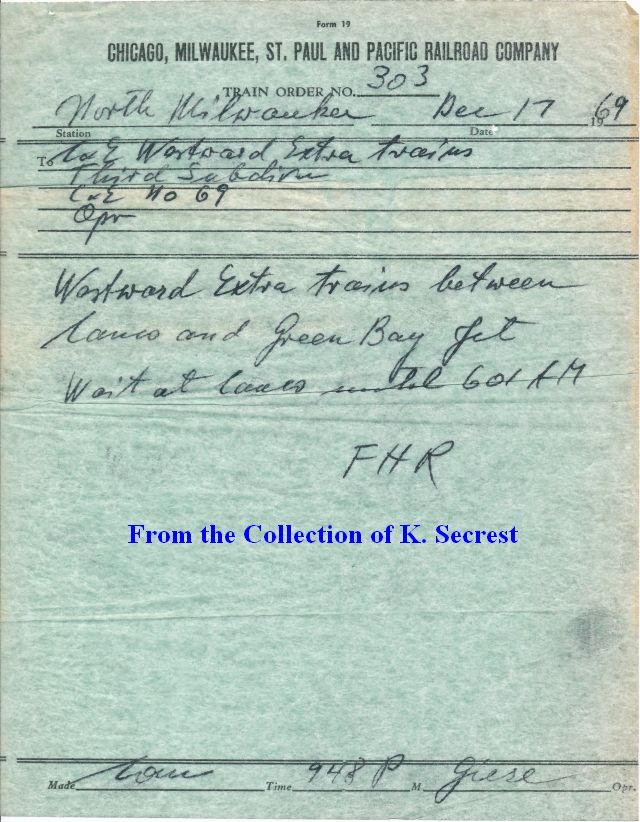 Form 19
CHICAGO, MILWAUKEE, ST. PAUL AND PACIFIC RAILROAD COMPANY
TRAIN ORDER NO. 303
North Milwaukee Dec 17 1969
Station Date
To C&E Westward Extra trains
Third Subdivn
C&E No 69
Opr
Westward Extra trains between
Canco and Green Bay Jct
Wait at Canco until 601 AM
FHR
From the Collection of K. Secrest
Made Com Time 948 P M Giese Opr.